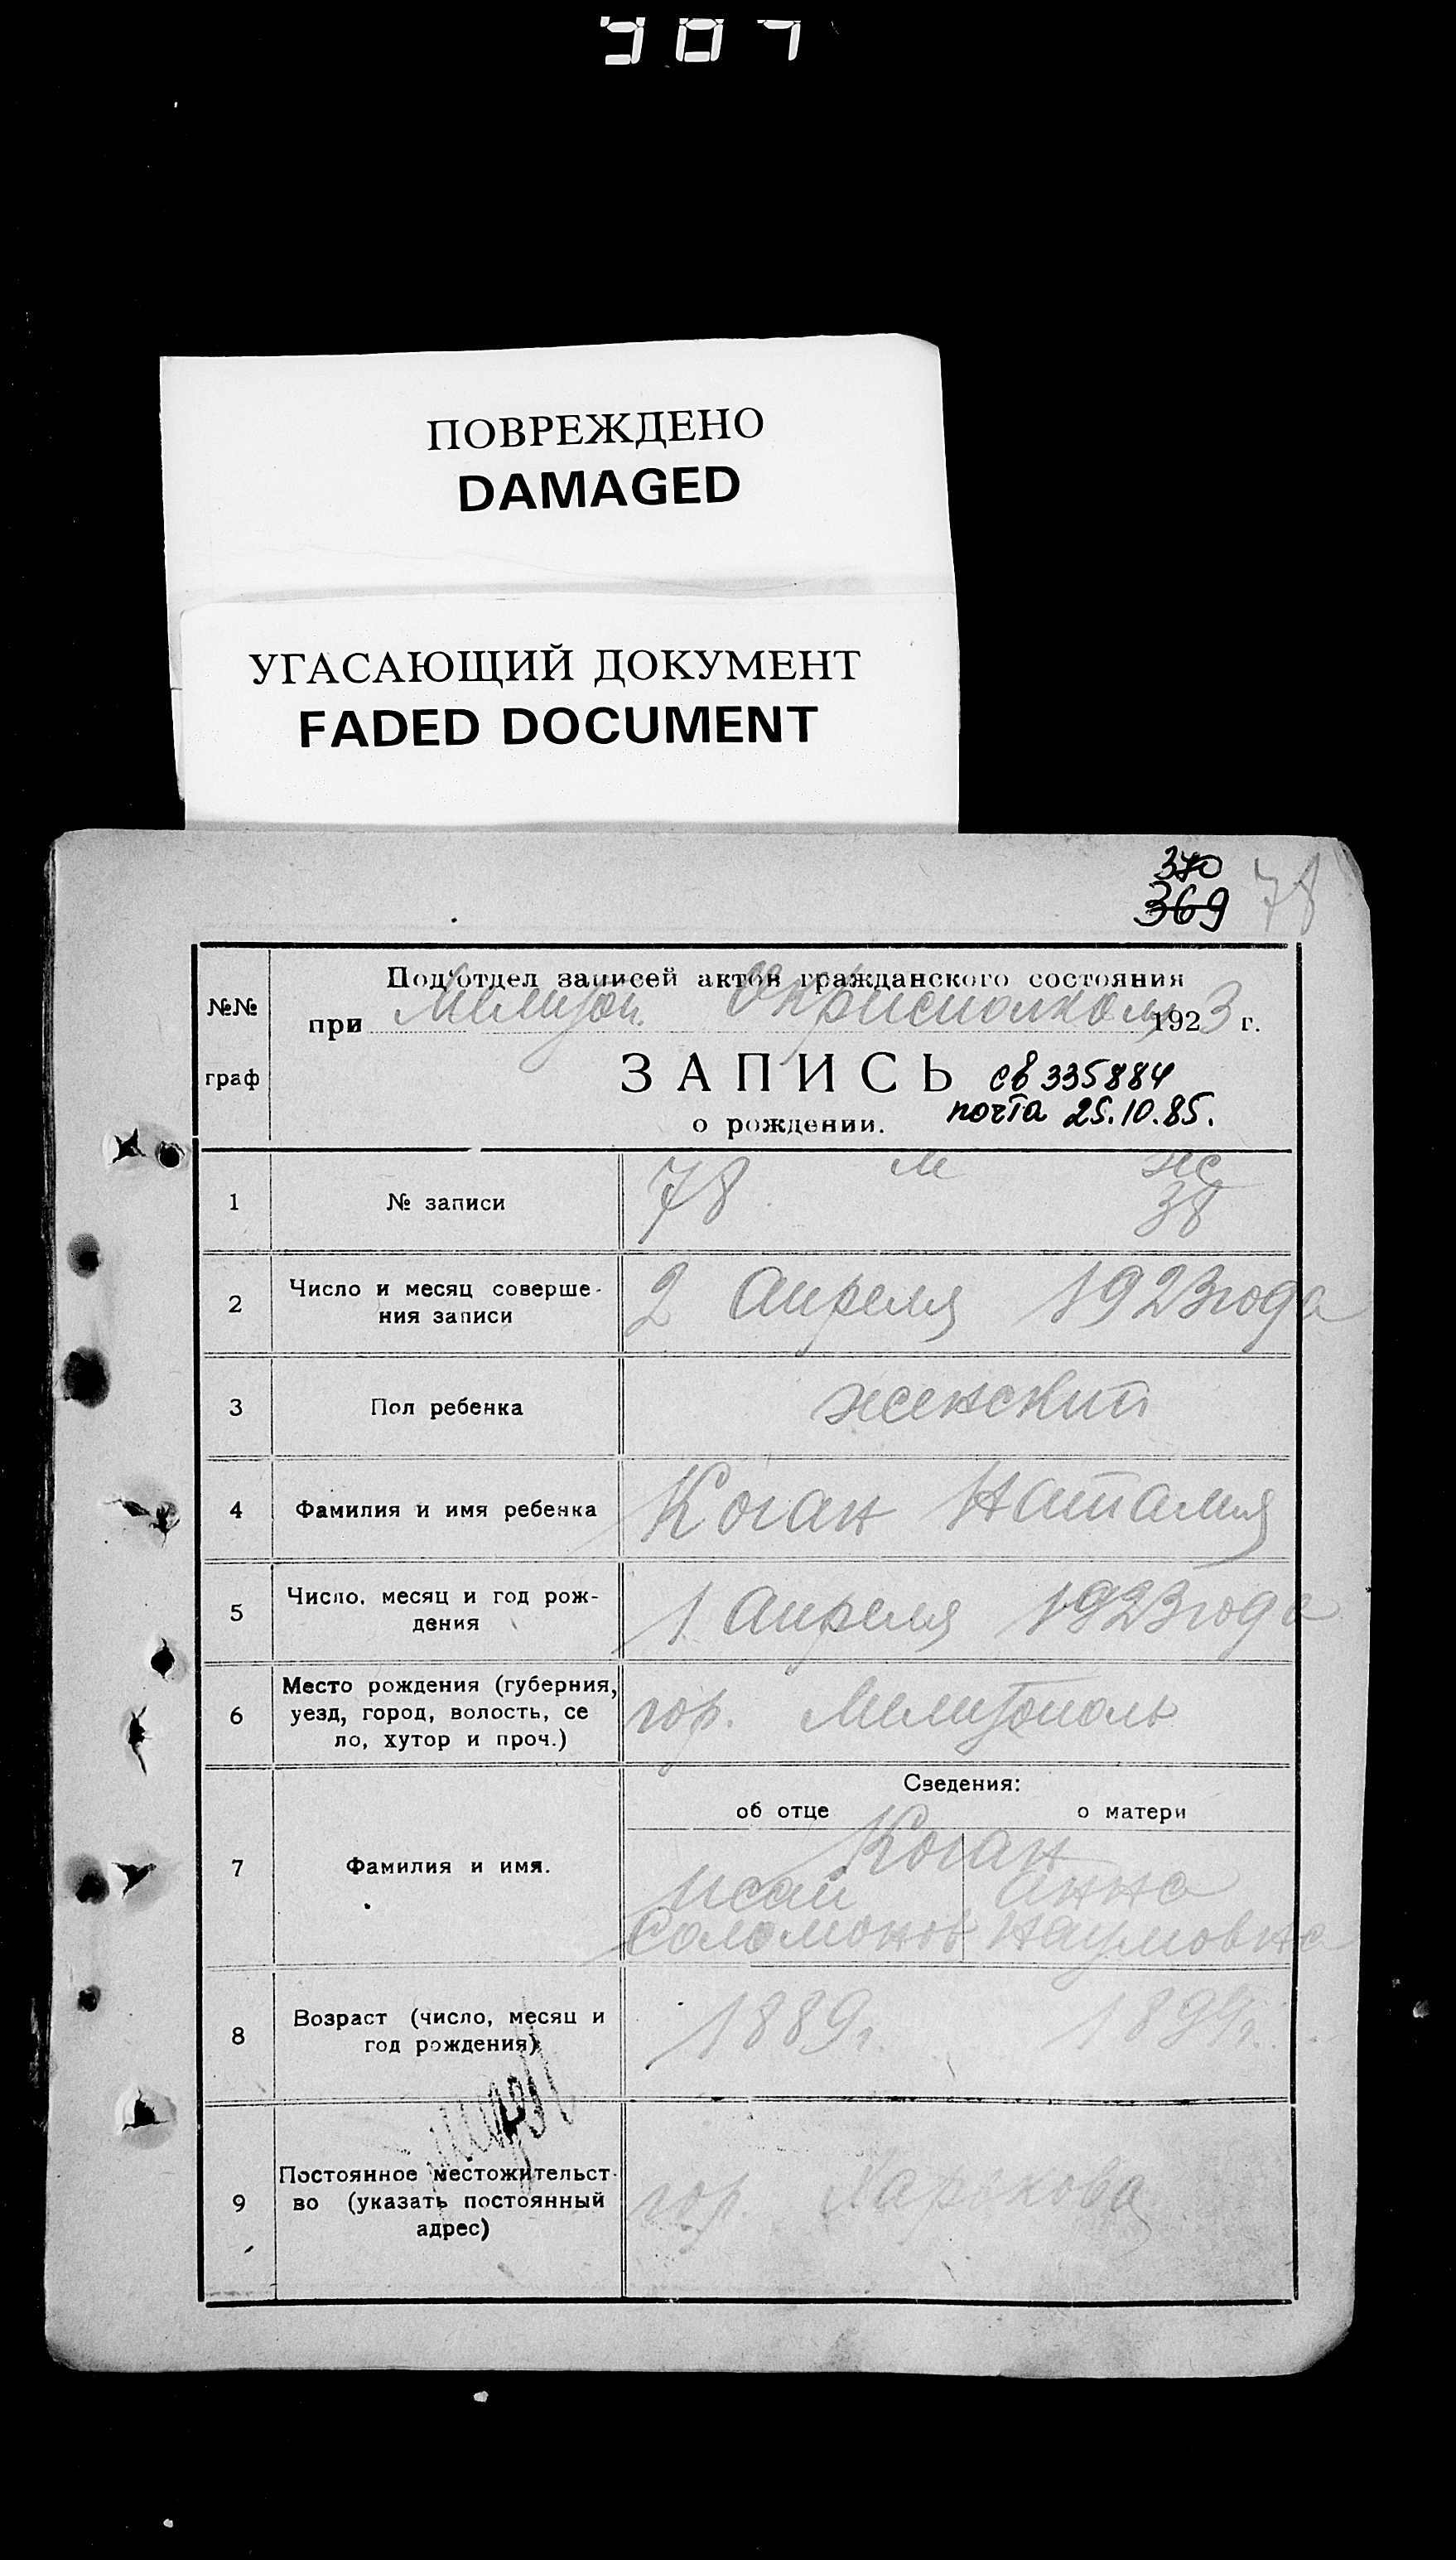 ПОВРЕЖДЕНО
DAMAGED
УГАСАЮЩИЙ ДОКУМЕНТ
FADED DOCUMENT
370
369 78
Под'отдел записей актов гражданского состояния
№№
при Мелитоп. Окрисполкоме 1923 г.
граф
ЗАПИСЬ св 335884
о рождении. почта 25.10.85.
м ж
1 № записи 78 38
2 Число и месяц соверше-
ния записи 2 Апреля 1923 года
3 Пол ребенка женский
4 Фамилия и имя ребенка Коган Наталия
5 Число, месяц и год рож-
дения 1 Апреля 1923 года
6 Место рождения (губерния,
уезд, город, волость, се
ло, хутор и проч.) гор. Мелитополь
Сведения:
об отце о матери
Коган
7 Фамилия и имя. Исаи Анна
Соломонов Наумовна
8 Возраст (число, месяц и
год рождения) 1889 г.
9 Постоянное местожительст-
во (указать постоянный
адрес) гор. Харькова